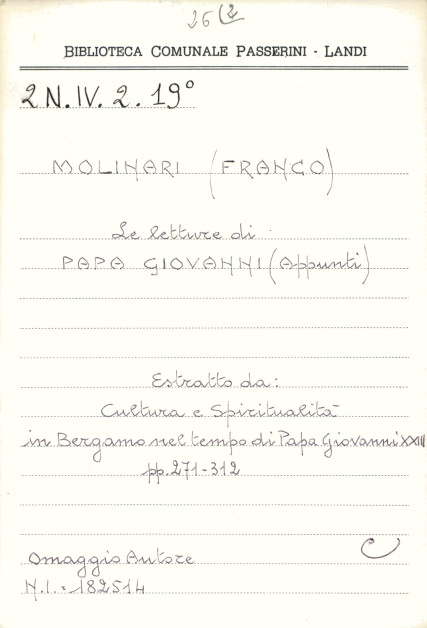 26(2
BIBLIOTECA COMUNALE PASSERINI - LANDI
2N.IV.2.19°
MOLINARI (FRANCO)
Le letture di
PAPA GIOVANNI (Appunti)
Estratto da:
Cultura e Spiritualità
in Bergamo nel tempo di Papa Giovanni XXIII
pp. 271-312
Omaggio Autore
N.I. = 182514